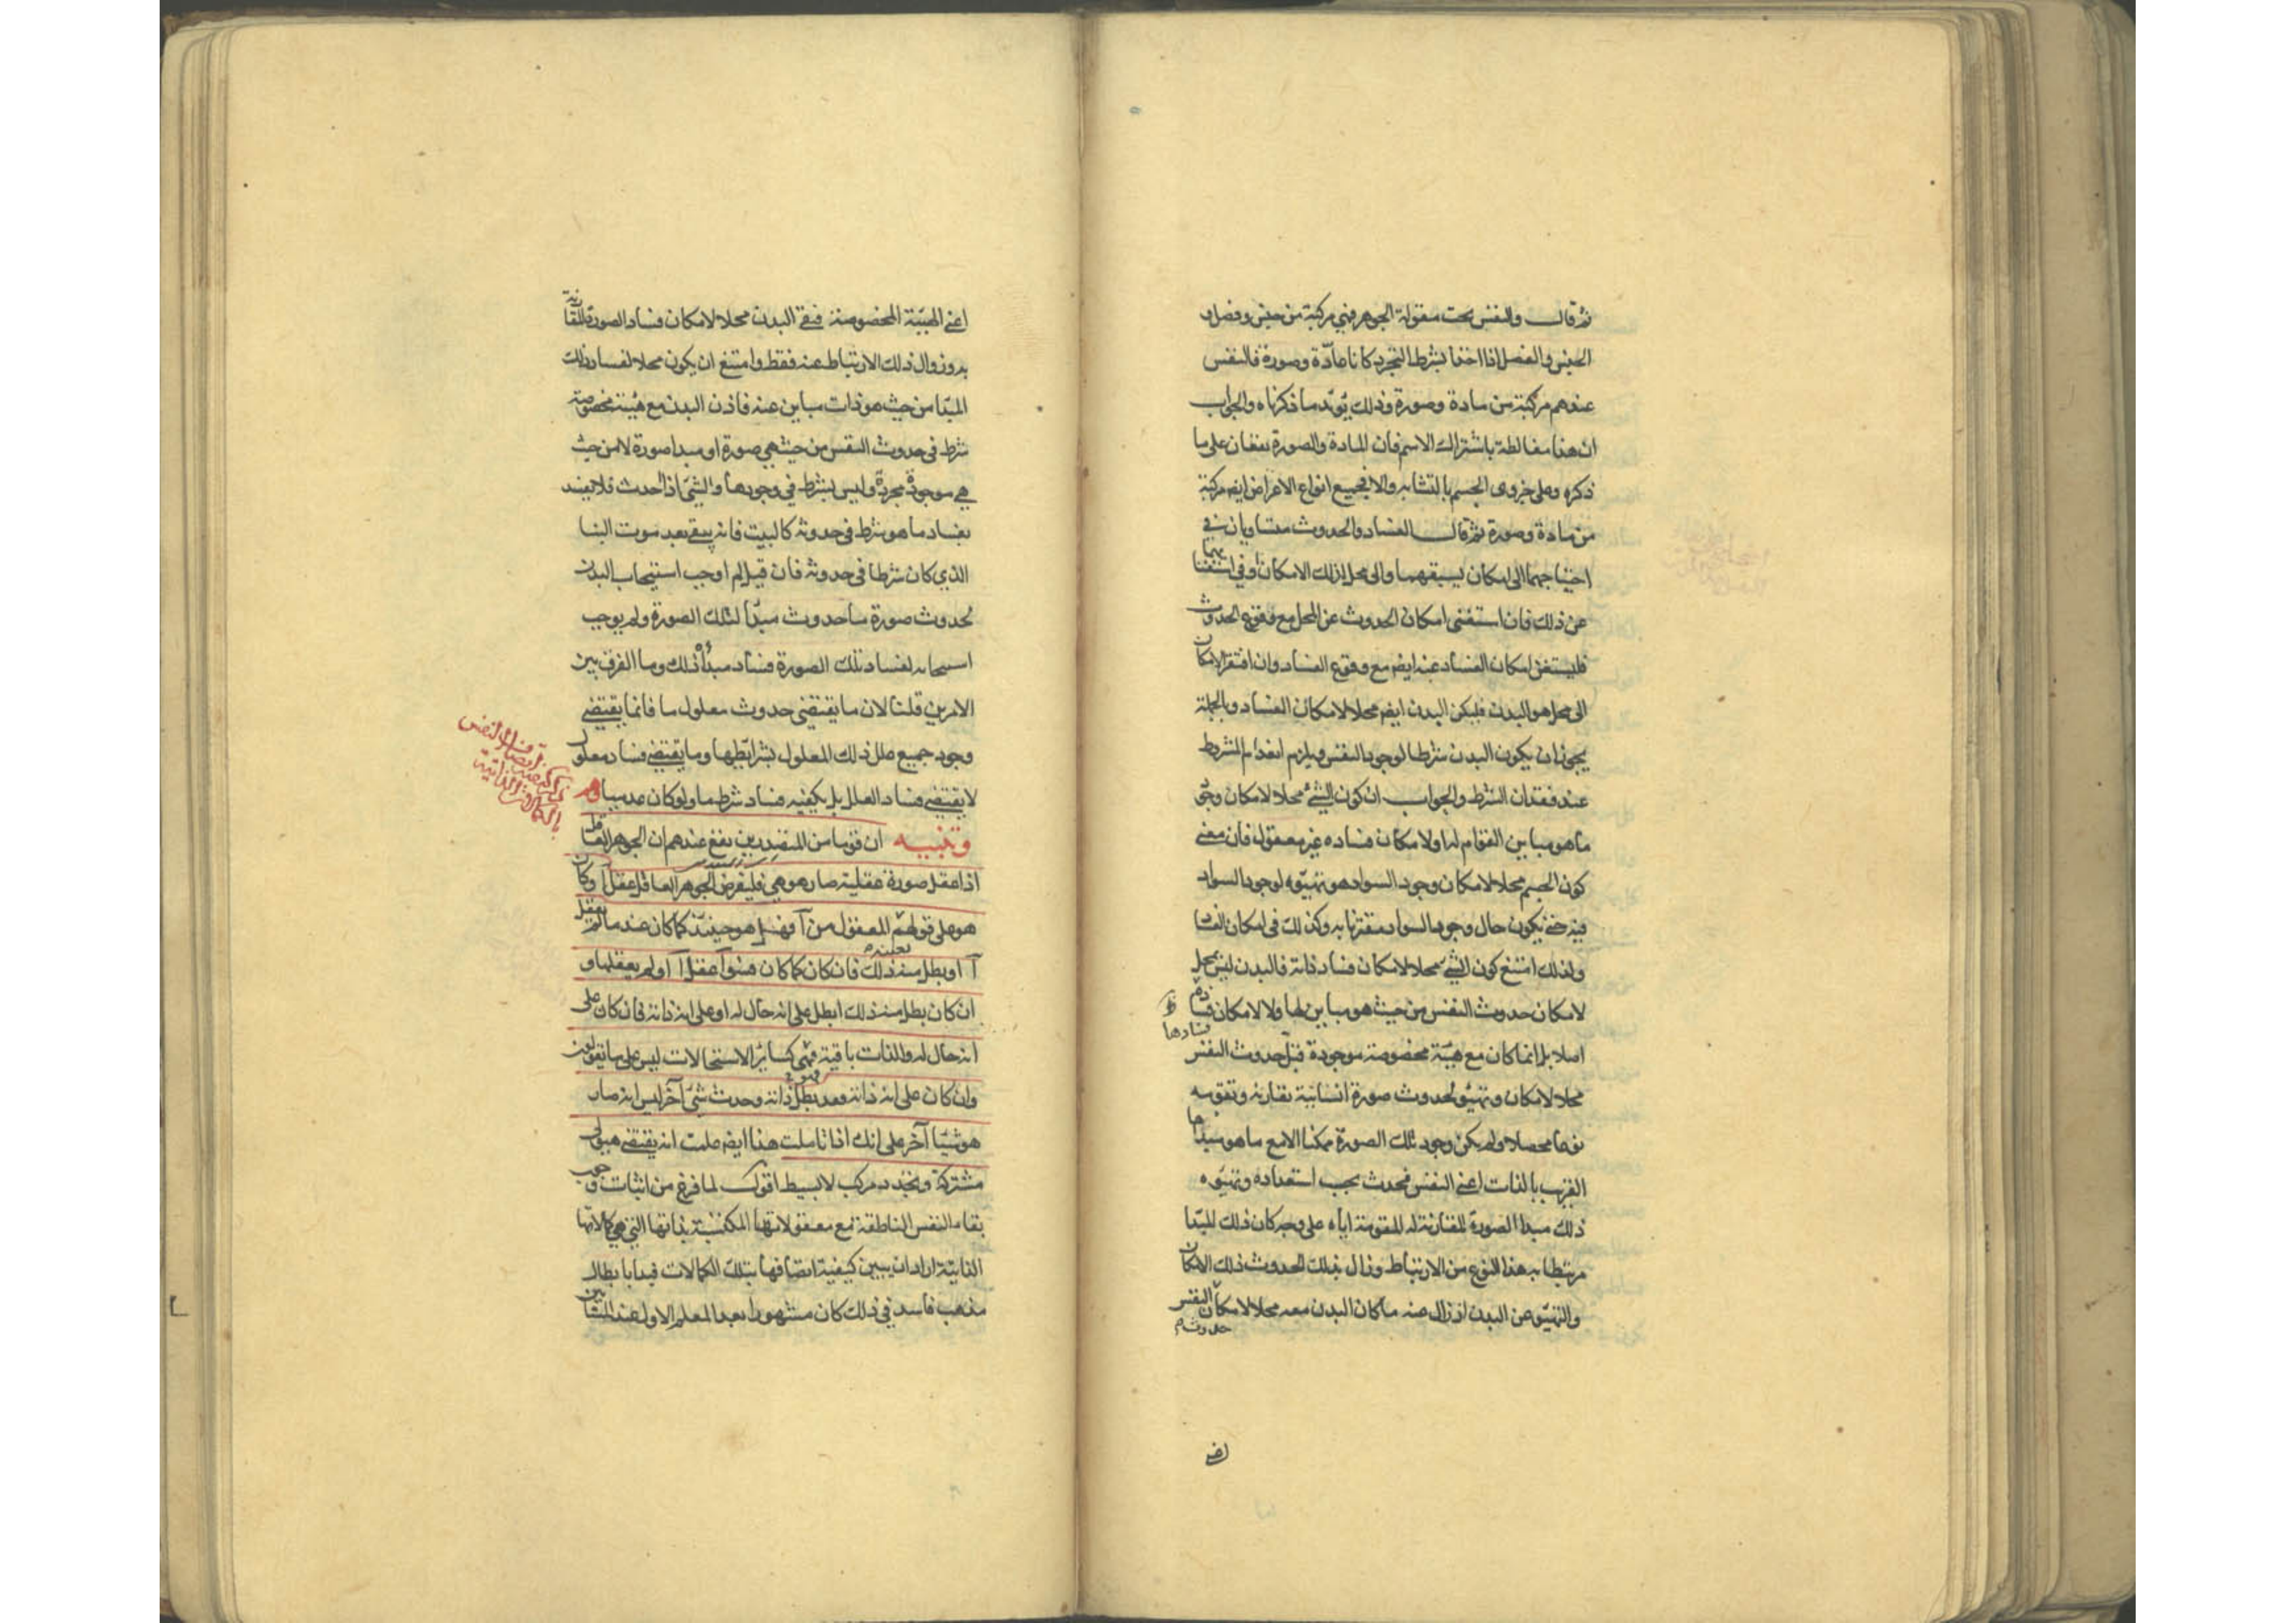 ثم قال والنفس تحت مقولة الجوهر فهي مركبة من جنس وفصل و
الجنس والفصل اذا اخذا بشرط التجرد كانا مادّة وصورة فالنفس
عندهم مركبة من مادة وصورة وذلك يؤيد ما ذكرناه والجواب
ان هذا مغالطة باشتراك الاسم فان المادة والصورة تقعان على ما
ذكره وعلى جزوى الجسم بالتشابه والا فجميع انواع الاعراض ايضا مركبة
من مادة وصورة ثم قال الفساد والحدوث متساويان في
احتياجهما الى امكان يسبقهما والى محل لذلك الامكان او في استغنائهما
عن ذلك فان استغنى امكان الحدوث عن المحل مع وقوع الحدوث
فليستغن امكان الفساد عنه ايضا مع وقوع الفساد وان افتقر الامكان
الى محل هو البدن فليكن البدن ايضا محلا لامكان الفساد وبالجملة
يجوز ان يكون البدن شرطا لوجود النفس ويلزم انعدام المشروط
عند فقدان الشرط والجواب ان كون الشئ محلا لامكان وجود
ما هو مباين القوام له او لامكان فساده غير معقول فان معنى
كون الجسم محلا لامكان وجود السواد هو تهيّوه لوجود السواد
فيه حتى يكون حال وجود السواد مقترنا به وكذلك في امكان الفساد
ولذلك امتنع كون الشئ محلا لامكان فساد ذاته فالبدن ليس بمحل
لامكان حدوث النفس من حيث هو مباين لها ولا لامكان فسادها
اصلا بل انما كان مع هيئة مخصوصة موجودة قبل حدوث النفس
محلا لامكان وتهيّؤ لحدوث صورة انسانية تقارنه وتقومه
نوعا محصلا ولم يكن وجود تلك الصورة ممكنا الا مع ما هو مبدأها
القريب بالذات اعني النفس فحدث بحسب استعداده وتهيّوه
ذلك مبدا الصورة المقارنة له المقومة اياه على وجه كان ذلك المبدا
مرتبطا به هذا النوع من الارتباط وزال بذلك الحدوث ذلك الامكان
والتهيّؤ عن البدن اذ زال عنه ما كان البدن معه محلا لامكان النفس
حدوث
اعني
اعني الهيئة المخصوصة فبقي البدن محلا لامكان فساد الصورة المقارنة
به وزوال ذلك الارتباط عنه فقط وامتنع ان يكون محلا لفساد ذلك
المبدا من حيث هو ذات مباين عنه فاذن البدن مع هيئة مخصوصة
شرط في حدوث النفس من حيث هي صورة او مبدا صورة لا من حيث
هي موجودة مجردة وليس بشرط في وجودها والشئ اذا حدث فلا يفسد
بفساد ما هو شرط في حدوثه كالبيت فانه يبقى بعد موت البنا
الذي كان شرطا في حدوثه فان قيل لم اوجب استيجاب البدن
لحدوث صورة ما حدوث مبدأ لتلك الصورة ولم يوجب
استيجابه لفساد تلك الصورة فساد مبدأ ذلك وما الفرق بين
الامرين قلنا لان ما يقتضى حدوث معلول ما فانما يقتضى
وجود جميع علل ذلك المعلول بشرايطها وما يقتضى فساد معلول
لا يقتضى فساد العلل بل يكفيه فساد شرط ما ولو كان عدميا وهم
وتنبيه ان قوما من المتصدرين يقع عندهم ان الجوهر العاقل
اذا عقل صورة عقلية صار هو هي فليفرض الجوهر العاقل عقل ا وكان
هو على قولهم المعقول من آ فهل هو حينئذ كما كان عند ما لم يعقل
آ او بطل منه ذلك فان كان كما كان فسواء عقل آ او لم يعقلها و
ان كان بطل منه ذلك ابطل على انه حال له او على انه ذاته فان كان على
انه حال له والذات باقية فهي كسائر الاستحالات ليس على ما يقولون
وان كان على انه ذاته فقد بطل ذاته وحدث شئ آخر ليس انه صار
هو شيئا آخر على انك اذا تاملت هذا ايضا علمت انه يقتضى هيولى
مشتركة وتجدد مركب لا بسيط اقول لما فرغ من اثبات وجوب
بقاء النفس الناطقة مع معقولاتها المكتسبة بذاتها التي هي كمالاتها
الذاتية اراد ان يبين كيفية اتصافها بتلك الكمالات فبدا بابطال
مذهب فاسد في ذلك كان مشهورا بعد المعلم الاول عند المشائين